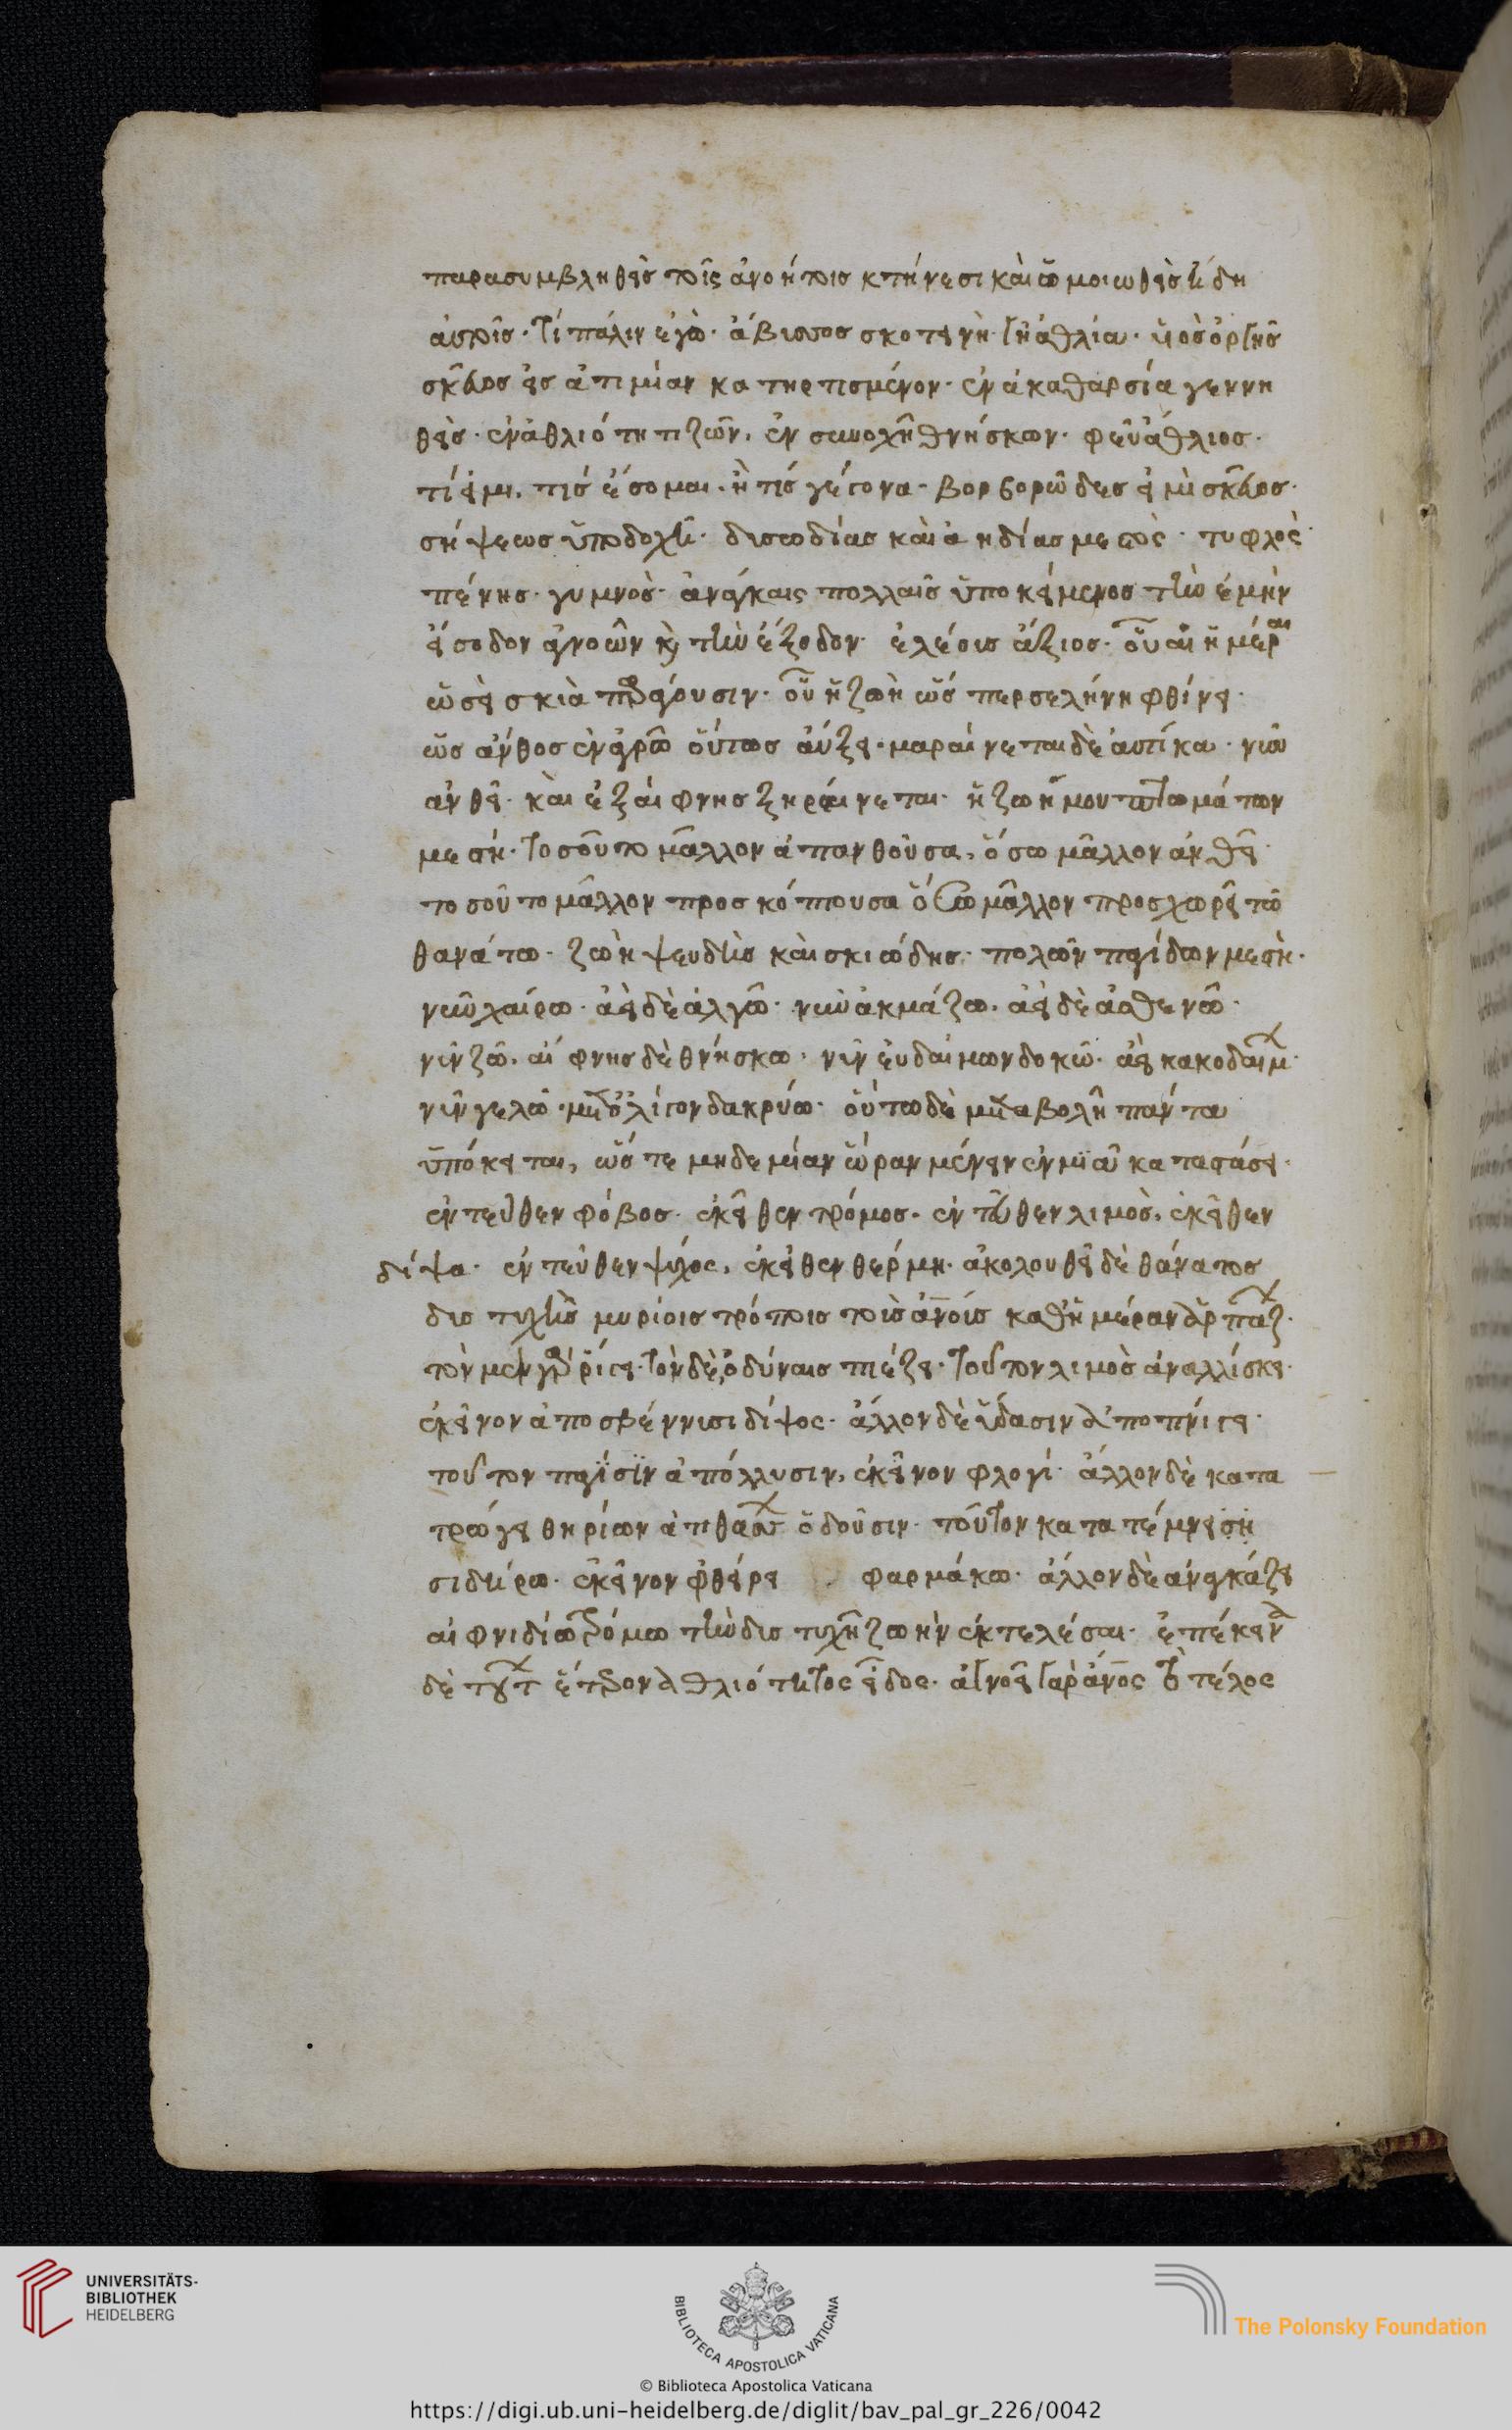 παρασυμβληθεὶς τοῖς ἀνοήτοις κτήνεσι καὶ ὡμοιωθεὶς ἤδη
αὐτοῖς· τί πάλιν ἐγὼ· ἄβυσσος σκοτεινὴ· γῆ ἀθλία· υἱὸς ὀργῆς
σκεῦος εἰς ἀτιμίαν κατηρτισμένον· ἐν ἀκαθαρσία γεννη
θεὶς· ἐν ἀθλιότητι ζῶν, ἐν συνοχῇ θνήσκων· φεῦ ἄθλιος·
τί εἰμι, τίς ἔσομαι, ἢ τίς γέγονα· βορβορῶδες εἰμὶ σκεῦος·
σήψεως ὑποδοχὴ· δυσωδίας καὶ ἀηδίας μεστὸς· τυφλὸς·
πένης· γυμνὸς· ἀνάγκαις πολλαῖς ὑποκείμενος τὴν ἐμὴν
εἴσοδον ἀγνοῶν κ τὴν ἔξοδον· ἐλέους ἄξιος· οὗ αἱ ἡμέραι
ὡσεὶ σκιὰ παράγουσιν· οὗ ἡ ζωὴ ὥσπερ σελήνη φθίνει·
ὡς ἄνθος ἐν ἀγρῶ οὕτως αὔξει· μαραίνεται δὲ αὐτίκα· νῦν
ἀνθεῖ· καὶ ἐξαίφνης ξηραίνεται· ἡ ζωή μου πτωμάτων
μεστή· τοσοῦτο μᾶλλον ἀπανθοῦσα, ὅσω μᾶλλον ἀνθεῖ·
τοσοῦτο μᾶλλον προσκόπτουσα ὅσω μᾶλλον προσχωρεῖ τῶ
θανάτω· ζωὴ ψευδὴς καὶ σκιώδης· πολλῶν παγίδων μεστὴ·
νῦν χαίρω· ἀεὶ δὲ ἀλγῶ· νῦν ἀκμάζω, ἀεὶ δὲ ἀσθενῶ·
νῦν ζῶ, αἴφνης δὲ θνήσκω· νῦν εὐδαίμων δοκῶ· ἀεὶ κακοδαιμ·
νῦν γελῶ· μετ' ὀλίγον δακρύω· οὕτω δὲ μεταβολῇ πάντα
ὑπόκειται, ὥστε μηδεμίαν ὥραν μένειν ἐν μιᾶ καταστάσει·
ἐντεῦθεν φόβος· ἐκεῖθεν τρόμος· ἐντεῦθεν λιμὸς, ἐκεῖθεν
δίψα· ἐντεῦθεν ψύχος, ἐκεῖθεν θέρμη· ἀκολουθεῖ δὲ θάνατος
δυστυχὴς μυρίοις τρόποις τοὺς ἀνοὺς καθ' ἡμέραν ἁρπάζ·
τὸν μὲν γὰρ ῥίγει· τὸν δὲ ὀδύναις πιέζει· τοῦτον λιμὸς ἀναλίσκει·
ἐκεῖνον ἀποσβέννυσι δίψος· ἄλλον δὲ ὕδασιν ἀποπνίγει·
τοῦτον παγίσιν ἀπόλλυσιν, ἐκεῖνον φλογί· ἄλλον δὲ κατα
τρώγει θηρίων ἀπηθας ὀδοῦσιν· τοῦτον κατατέμνει ση
σιδήρω· ἐκεῖνον φθείρει φαρμάκω· ἄλλον δὲ ἀναγκάζει
αἰφνιδίω τρόμω τὴν δυστυχῆ ζωὴν ἐκτελέσαι· ἐπέκεινα
δὲ τούτ ἕτερον ἀθλιότητος εἶδος· ἀγνοεῖ γὰρ ἄνος τὸ τέλος
UNIVERSITÄTS-
BIBLIOTHEK
HEIDELBERG
BIBLIOTECA APOSTOLICA VATICANA
The Polonsky Foundation
© Biblioteca Apostolica Vaticana
https://digi.ub.uni-heidelberg.de/diglit/bav_pal_gr_226/0042